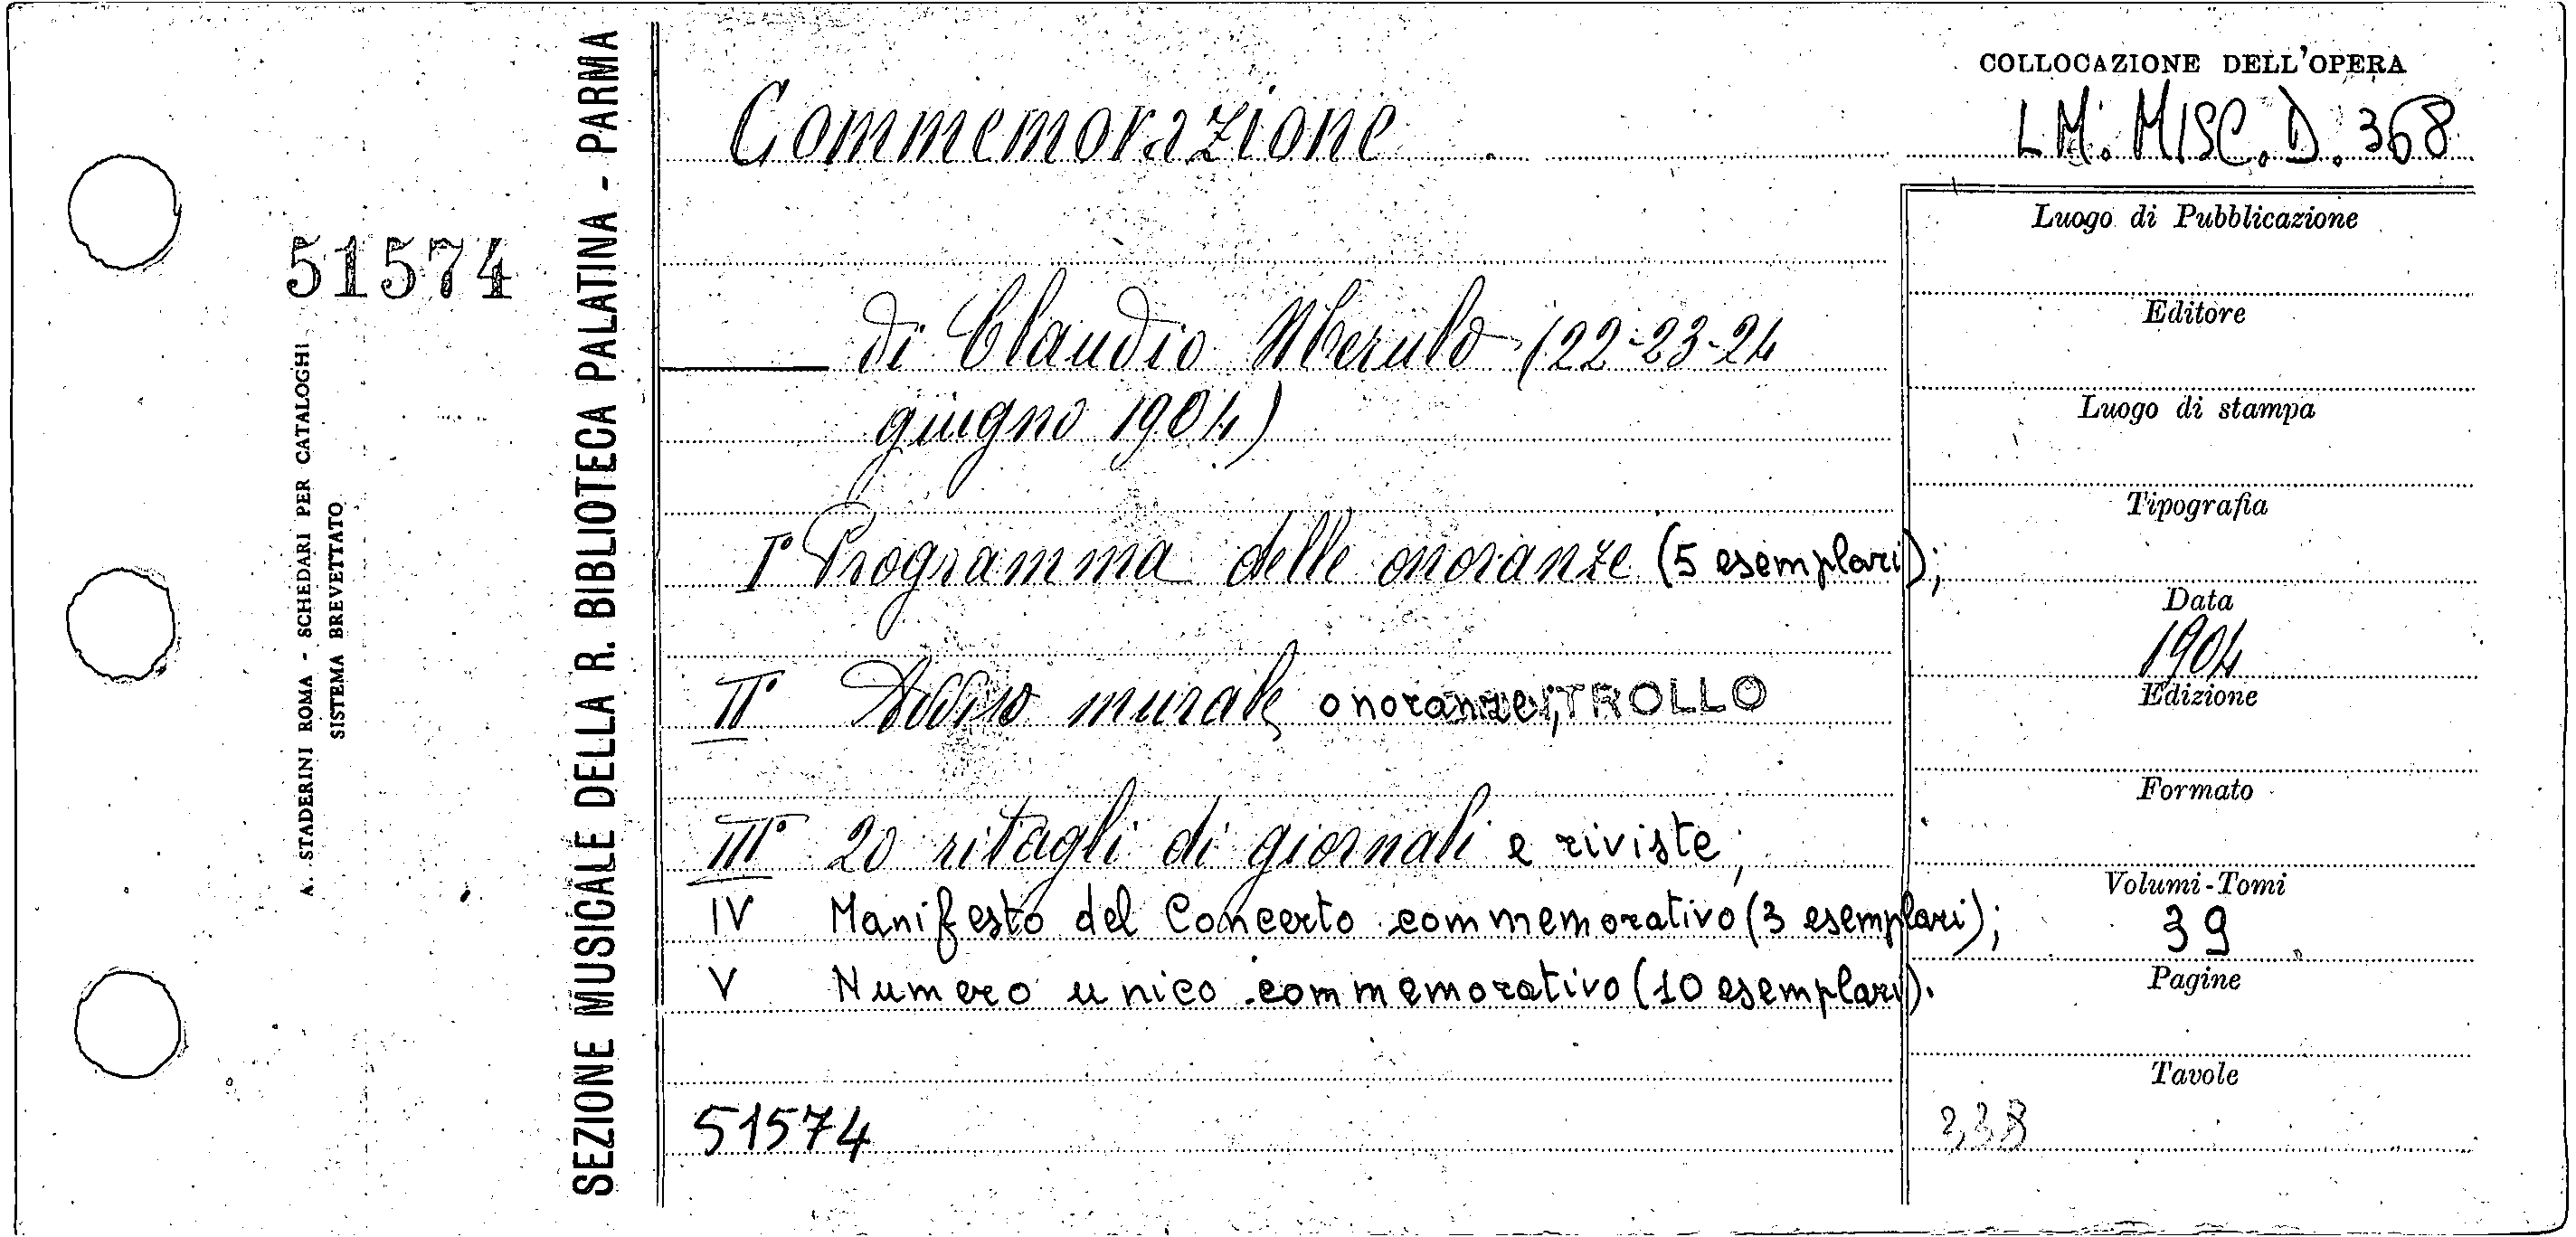 COLLOCAZIONE DELL'OPERA
Commemorazione
LM. MISC. D. 368
51574
A. STADERINI ROMA - SCHEDARI PER CATALOGHI
SISTEMA BREVETTATO
SEZIONE MUSICALE DELLA R. BIBLIOTECA PALATINA - PARMA
di Claudio Merulo (22-23-24
giugno 1904)
I° Programma delle onoranze (5 esemplari);
II° Avviso murale onoranze;
III° 20 ritagli di giornali e riviste;
IV Manifesto del Concerto commemorativo (3 esemplari);
V Numero unico commemorativo (10 esemplari).
51574
Luogo di Pubblicazione
Editore
Luogo di stampa
Tipografia
Data
1904
Edizione
Formato
Volumi-Tomi
39
Pagine
Tavole
338